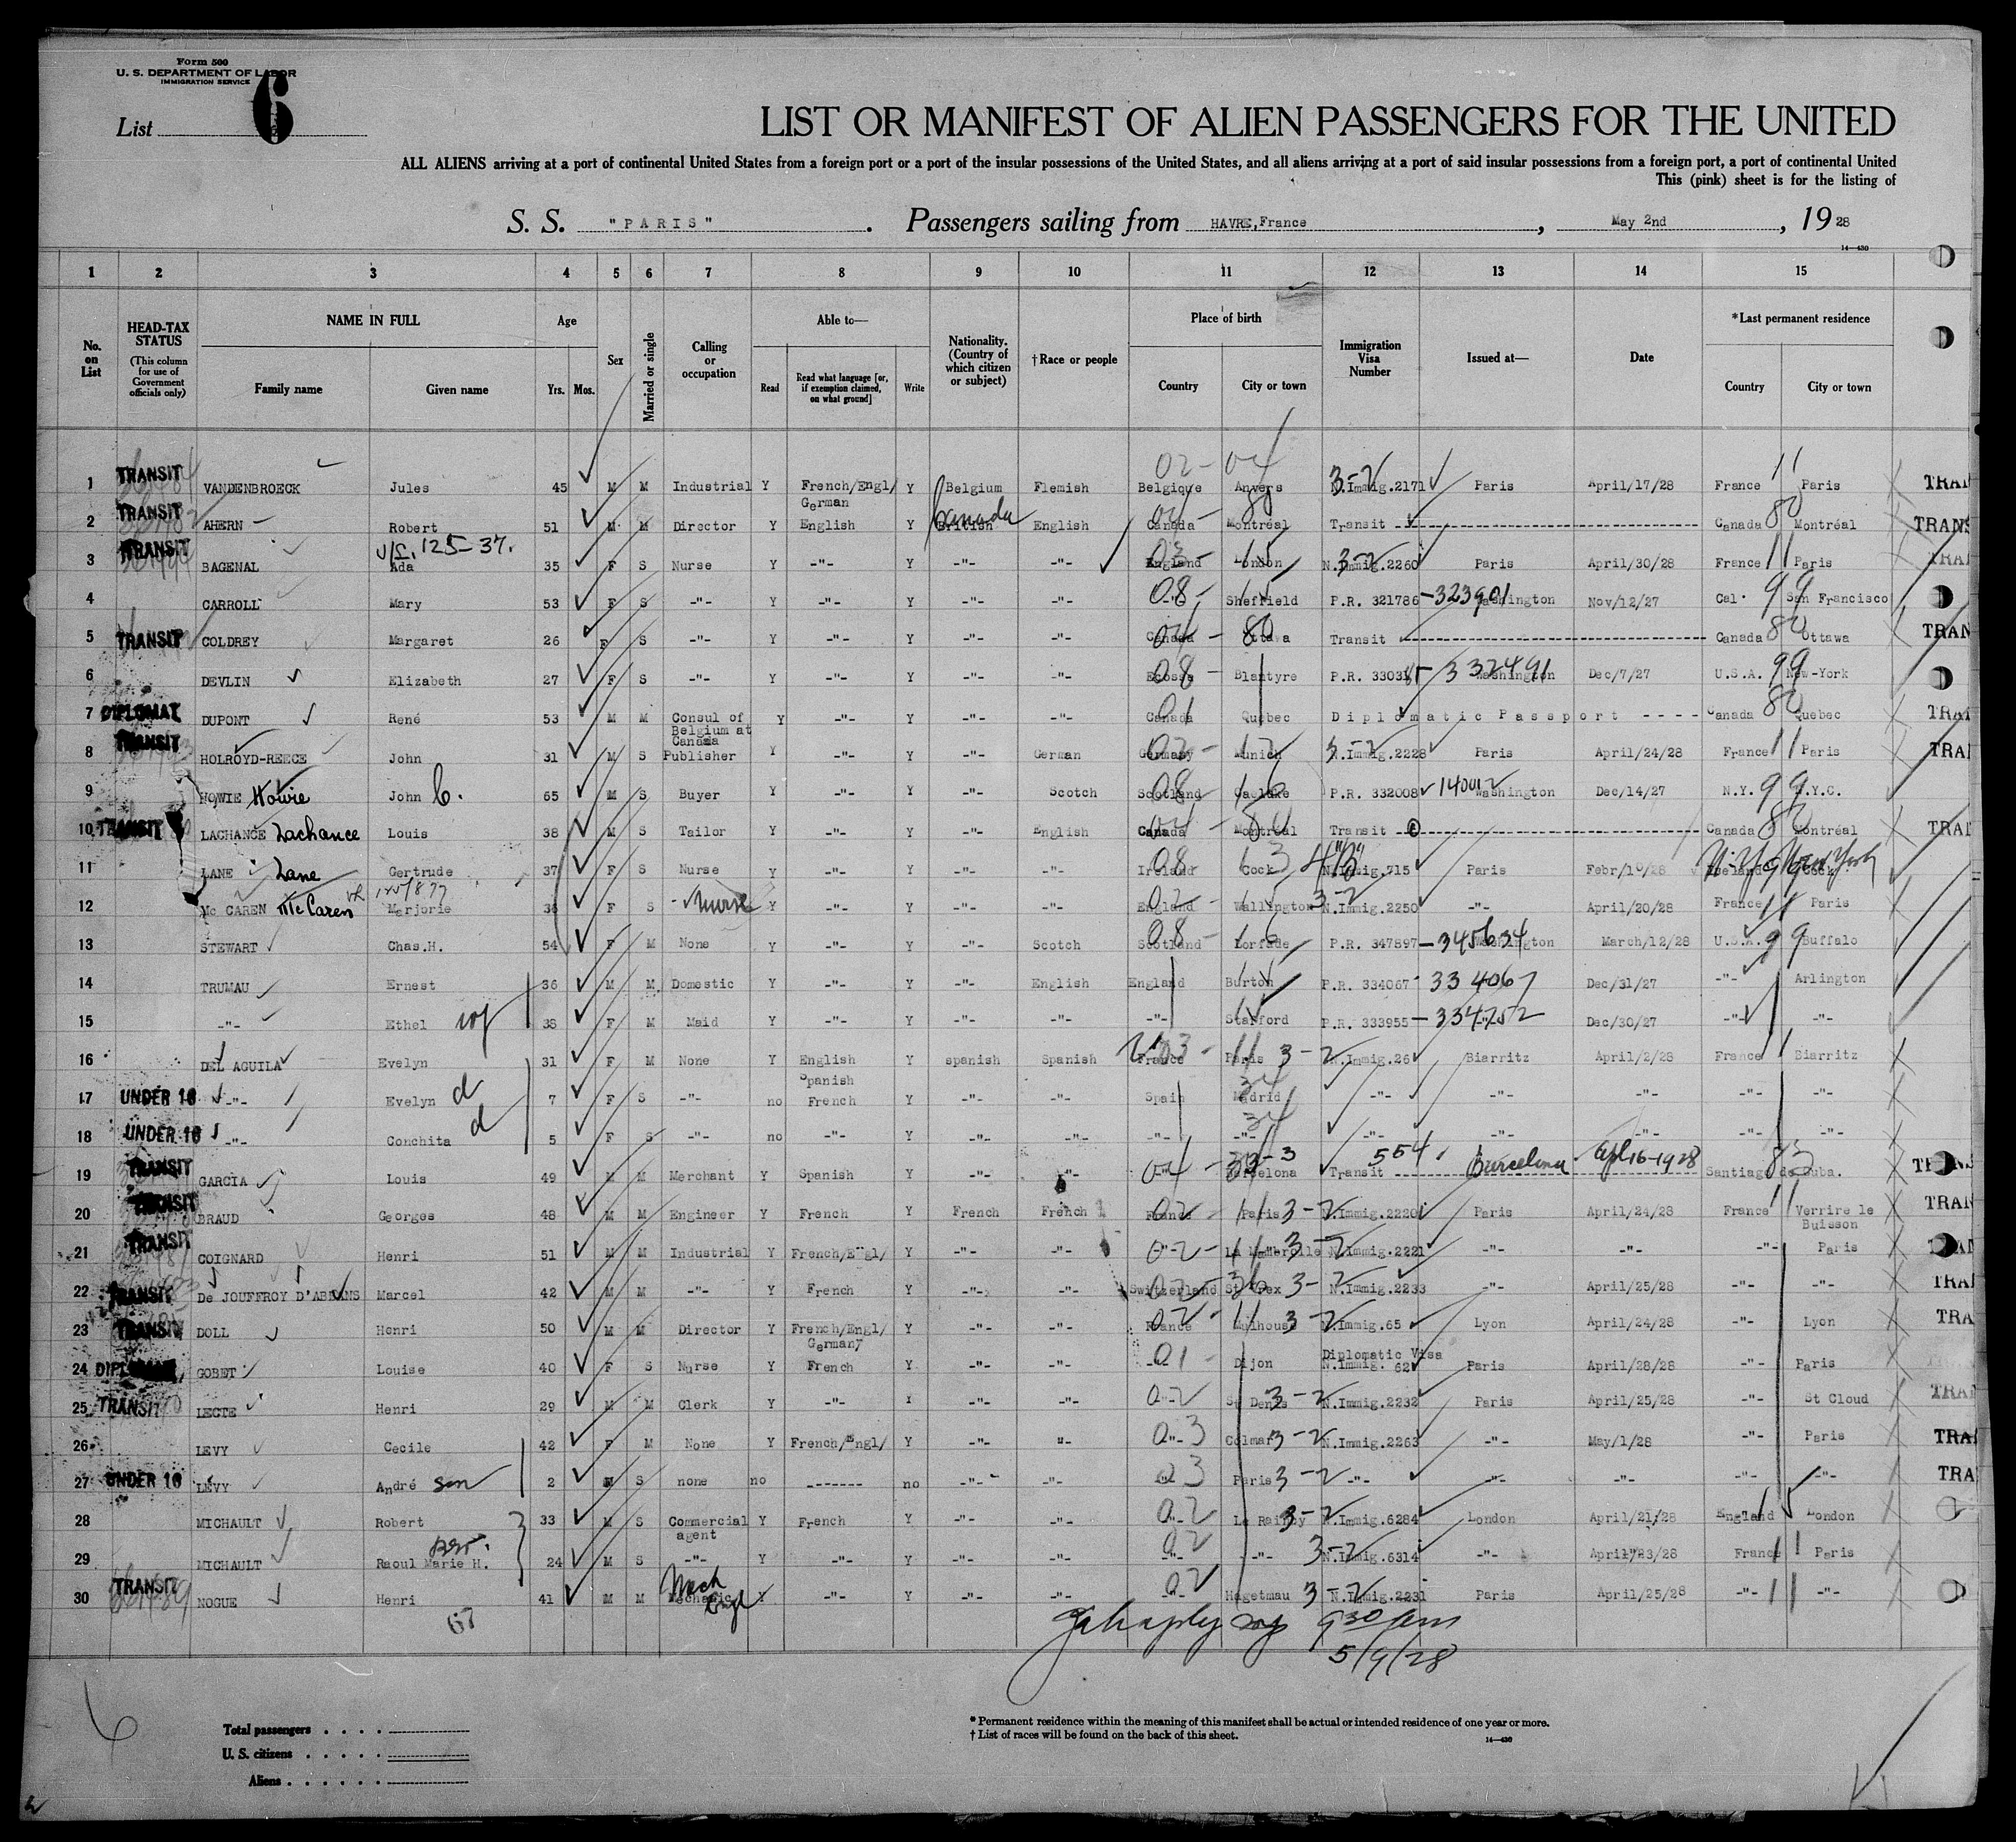 Form 500
U. S. DEPARTMENT OF LABOR
IMMIGRATION SERVICE
List 6
LIST OR MANIFEST OF ALIEN PASSENGERS FOR THE UNITED
ALL ALIENS arriving at a port of continental United States from a foreign port or a port of the insular possessions of the United States, and all aliens arriving at a port of said insular possessions from a foreign port, a port of continental United
This (pink) sheet is for the listing of
S. S. "PARIS". Passengers sailing from HAVRE, France, May 2nd, 1928
14—430
1 2 3 4 5 6 7 8 9 10 11 12 13 14 15
No. on List
HEAD-TAX STATUS (This column for use of Government officials only)
NAME IN FULL Family name Given name
Age Yrs. Mos.
Sex
Married or single
Calling or occupation
Able to— Read Read what language [or, if exemption claimed, on what ground] Write
Nationality. (Country of which citizen or subject)
†Race or people
Place of birth Country City or town
Immigration Visa Number
Issued at—
Date
*Last permanent residence Country City or town
1 TRANSIT VANDENBROECK Jules 45 M M Industrial Y French/Engl/ German Y Belgium Flemish Belgique Anvers 02- 3-2 N.Immig.2171 Paris April/17/28 France 11 Paris
2 TRANSIT AHERN Robert 51 M M Director Y English Y British Canada English Canada Montréal 80 Transit Canada 80 Montréal TRANS
3 TRANSIT BAGENAL Ada 125-37. 35 F S Nurse Y -"- Y -"- -"- England London 3-2 N.Immig.2260 Paris April/30/28 France 11 Paris
4 CARROLL Mary 53 F S -"- Y -"- Y -"- -"- 08- Sheffield P.R. 321786 -323901 Washington Nov/12/27 Cal. 99 San Francisco
5 TRANSIT COLDREY Margaret 26 F S -"- Y -"- Y -"- -"- Canada 04- 80 Ottawa Transit Canada 80 Ottawa TRAN
6 DEVLIN Elizabeth 27 F S -"- Y -"- Y -"- -"- Ecosse 08- Blantyre P.R. -332491 Washington Dec/7/27 U.S.A. 99 New-York
7 DIPLOMAT DUPONT René 53 M M Consul of Belgium at Canada Y -"- Y -"- -"- Canada 01 Quebec Diplomatic Passport Canada 80 Quebec
8 TRANSIT HOLROYD-REECE John 31 M S Publisher Y -"- Y -"- German Germany 02- Munich 12 3-2 N.Immig.2228 Paris April/24/28 France 11 Paris
9 HOWIE Howie John C. 65 M S Buyer Y -"- Y -"- Scotch Scotland 08 P.R. 332008 Washington Dec/14/27 N.Y. 99 N.Y.C.
10 TRANSIT LACHANCE Lachance Louis 38 M S Tailor Y -"- Y -"- English Canada 04 -80 Montréal Transit Canada 80 Montréal
11 LANE Lane Gertrude 37 F S Nurse Y -"- Y -"- -"- Ireland 08 Cock N.Immig.715 Paris Febr/10/28 Ireland 99 Cock N.Y. New York
12 Mc CAREN McCaren Marjorie 36 F S Nurse Y -"- Y -"- -"- England 02- Wallington 3-2 N.Immig.2250 -"- April/20/28 France 11 Paris
13 STEWART Chas.H. 54 F M None Y -"- Y -"- Scotch Scotland 08- 16 P.R. 347897 -345634 Washington March/12/28 U.S.A. 99 Buffalo
14 TRUMAU Ernest 36 M M Domestic Y -"- Y -"- English England Burton P.R. 334067 334067 Dec/31/27 -"- Arlington
15 -"- Ethel wf 38 F M Maid Y -"- Y -"- -"- -"- Stafford P.R. 333955 -334752 -"- Dec/30/27 -"- -"-
16 DEL AGUILA Evelyn 31 F M None Y English Spanish Y spanish Spanish France 03- 11 Paris 3-2 N.Immig.26 Biarritz April/2/28 France 11 Biarritz
17 UNDER 16 -"- Evelyn d 7 F S -"- no French Y -"- -"- Spain Madrid 34 -"- -"- -"- -"- -"-
18 UNDER 16 -"- Conchita d 5 F S -"- no -"- Y -"- -"- -"- -"- 34 -"- -"- -"- -"- -"-
19 TRANSIT GARCIA Louis 49 M M Merchant Y Spanish Y -"- -"- 04 Barcelona Transit 554 Barcelona Apl 16-1928 Santiago de Cuba. 83
20 TRANSIT BRAUD Georges 48 M M Engineer Y French Y French French France 02- 11 Paris 3-2 N.Immig.2220 Paris April/24/28 France 11 Verrire le Buisson TRAN
21 TRANSIT COIGNARD Henri 51 M M Industrial Y French/Engl/ Y -"- -"- -"- 02- 11 3-2 N.Immig.2221 -"- -"- -"- Paris
22 TRANSIT De JOUFFROY D'ABBANS Marcel 42 M M -"- Y French Y -"- -"- Switzerland 02 3-2 N.Immig.2233 -"- April/25/28 -"- -"- TRA
23 TRANSIT DOLL Henri 50 M M Director Y French/Engl/ Germany Y -"- -"- France 02- 11 Mulhouse 3-2 N.Immig.65 Lyon April/24/28 -"- Lyon TRA
24 DIPLOMAT GOBET Louise 40 F S Nurse Y French Y -"- -"- -"- 01- Dijon Diplomatic Visa N.Immig. 62 Paris April/28/28 -"- Paris
25 TRANSIT LECTE Henri 29 M M Clerk Y -"- Y -"- -"- -"- 02 St Denis 3-2 N.Immig.2232 Paris April/25/28 -"- St Cloud
26 LEVY Cecile 42 F M None Y French/Engl/ Y -"- -"- -"- 03 Colmar 3-2 N.Immig.2263 -"- May/1/28 -"- Paris TRA
27 UNDER 16 LEVY André son 2 M S none no ------- no -"- -"- -"- 03 Paris 3-2 -"- -"- -"- -"- -"- TRA
28 MICHAULT Robert 33 M S Commercial agent Y French Y -"- -"- -"- 02 Le Raincy 3-2 N.Immig.6284 London April/21/28 England London
29 MICHAULT Raoul Marie H. bro. 24 M S -"- Y -"- Y -"- -"- -"- 02 -"- 3-2 N.Immig.6314 -"- April/23/28 France 11 Paris
30 TRANSIT NOGUE Henri 41 M M Mechanic Mech Engr Y -"- Y -"- -"- -"- 02 Hagetmau 3-2 N.Immig.2231 Paris April/25/28 -"- 11 -"-
9 30 am
5/9/28
6
Total passengers . . . .
U. S. citizens . . . . .
Aliens . . . . . .
* Permanent residence within the meaning of this manifest shall be actual or intended residence of one year or more.
† List of races will be found on the back of this sheet.
14—430